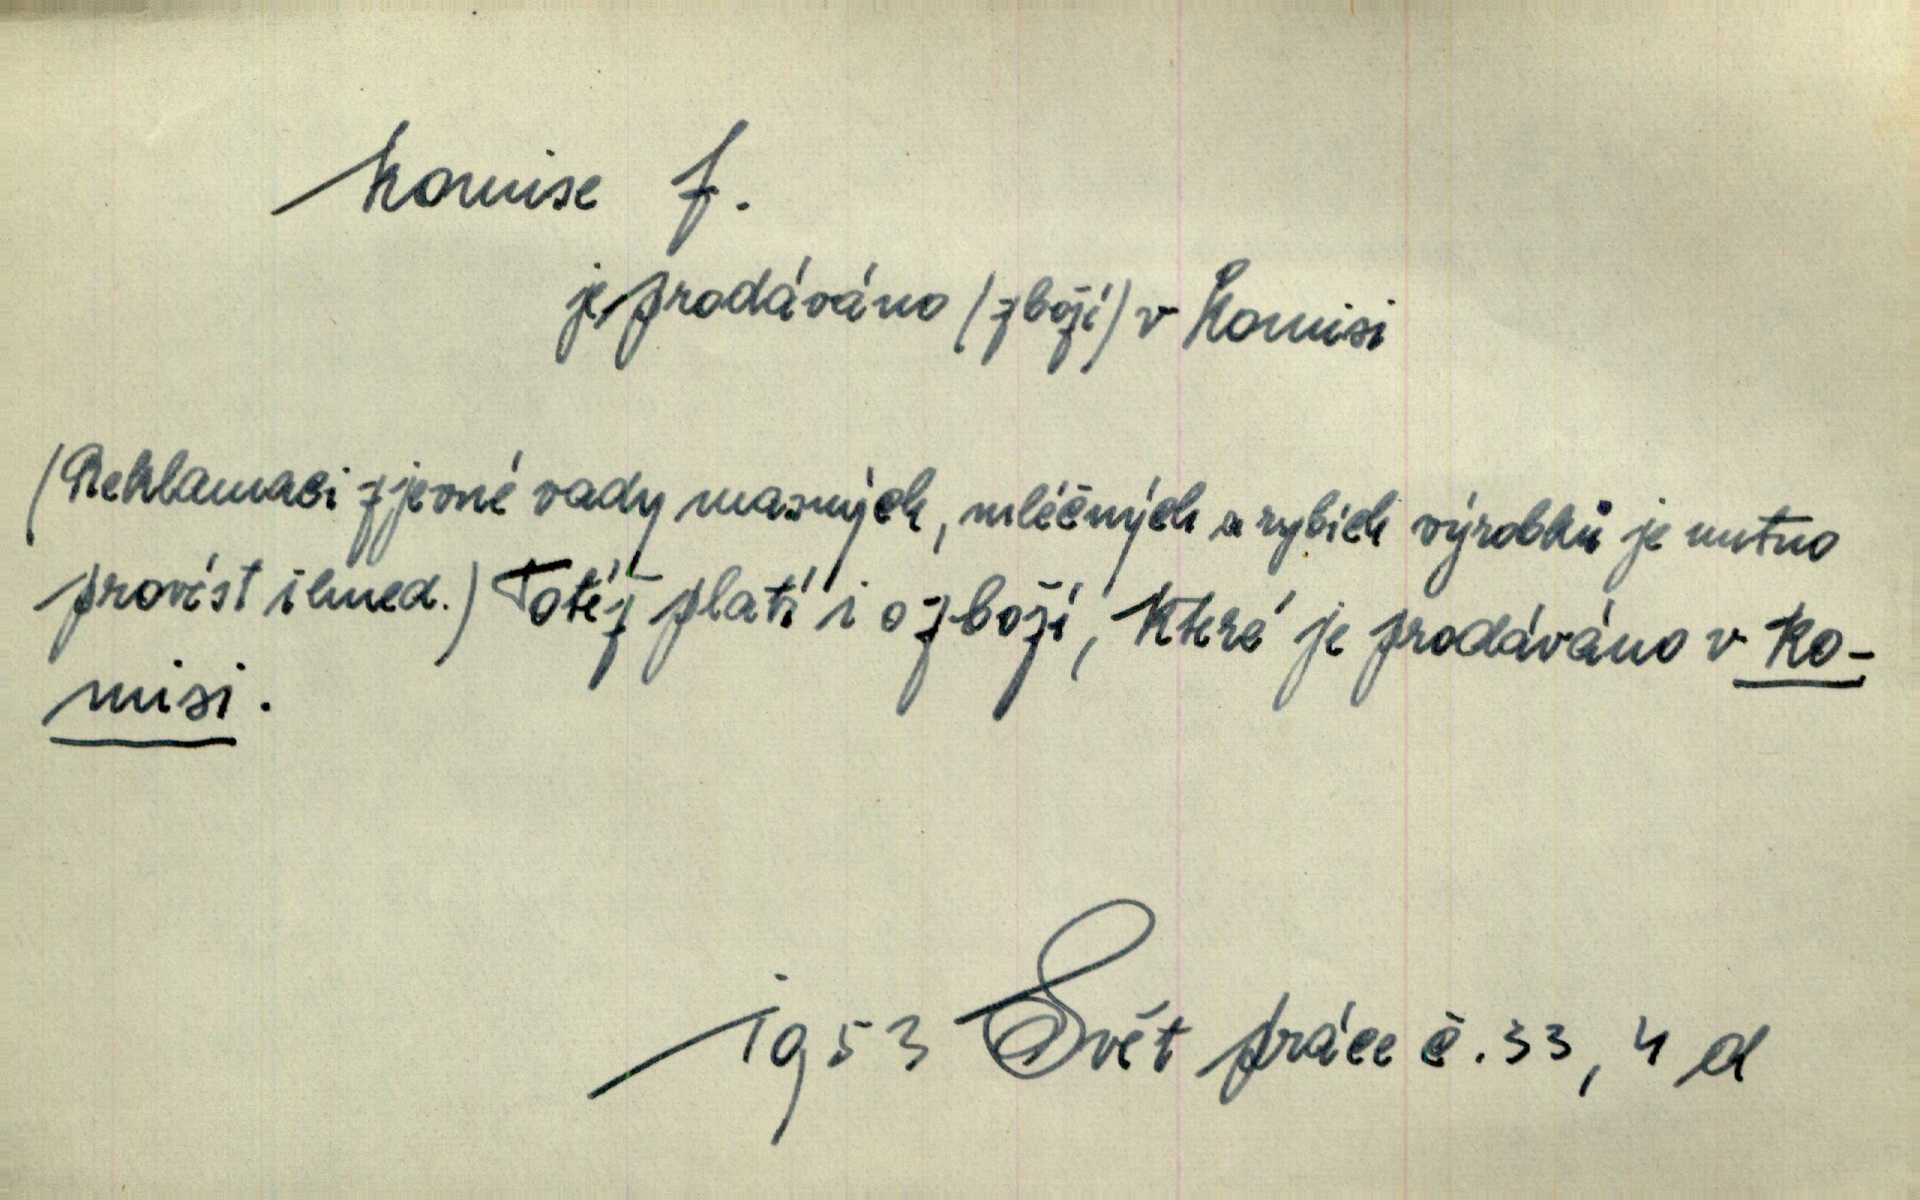 komise f.
je prodáváno (zboží) v komisi
(Reklamaci zjevné vady masných, mléčných a rybích výrobků je nutno
provést ihned.) Totéž platí i o zboží, které je prodáváno v ko-
misi.
1953 Svět práce č. 33, 4 d